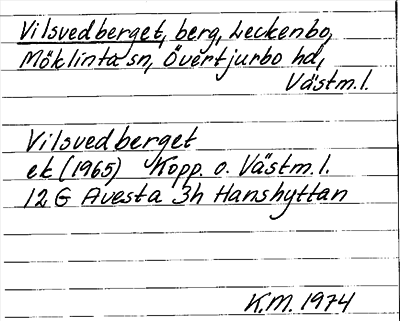 Vilsvedberget, berg, Leckenbo,
Möklinta sn, Övertjurbo hd,
Västm.l.
Vilsvedberget
ek (1965) Kopp. o. Västm.l.
12 G Avesta 3h Hanshyttan
K.M. 1974